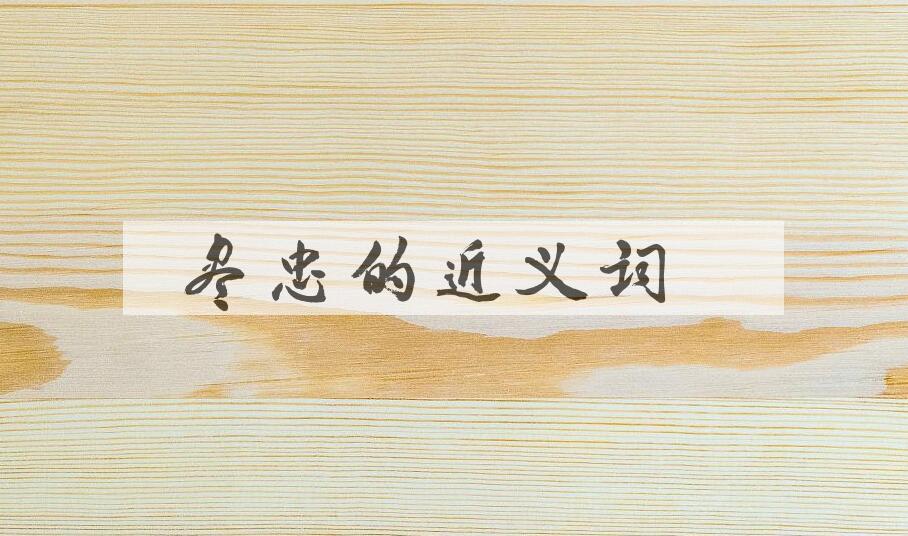 尽忠的近义词